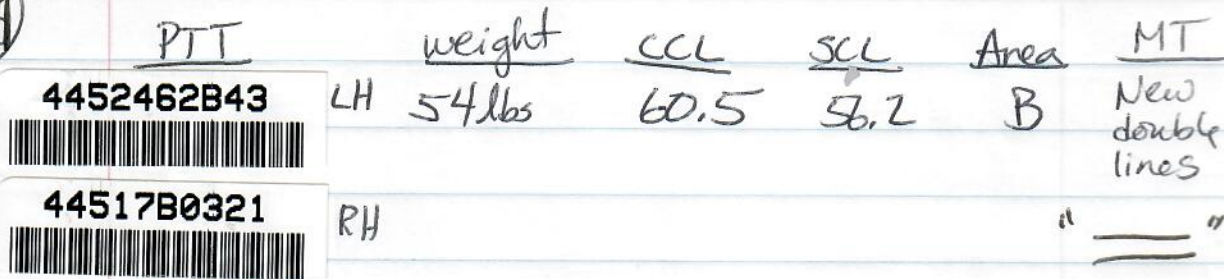 PTT weight CCL SCL Area MT
4452462B43 LH 54 lbs 60.5 56.2 B New
double
lines
44517B0321 RH " "